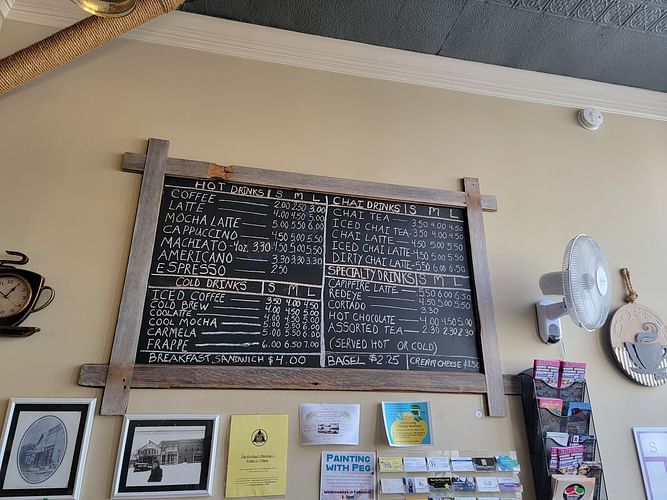 HOT DRINKS S M L
COFFEE 2.00 2.50 3.00
LATTE 4.00 4.50 5.00
MOCHA LATTE 5.00 5.50 6.00
CAPPUCCINO 4.50 5.00 5.50
MACHIATO 4oz. 3.30 4.50 5.00 5.50
AMERICANO 3.30 3.30 3.30
ESPRESSO 2.50
COLD DRINKS S M L
ICED COFFEE 3.50 4.00 4.50
COLD BREW 4.00 4.50 5.00
COOLATTE 4.00 4.50 5.00
COOL MOCHA 5.00 5.50 6.00
CARMELA 5.00 5.50 6.00
FRAPPE 6.00 6.50 7.00
BREAKFAST SANDWICH $4.00
CHAI DRINKS S M L
CHAI TEA 3.50 4.00 4.50
ICED CHAI TEA 3.50 4.00 4.50
CHAI LATTE 4.50 5.00 5.50
ICED CHAI LATTE 4.50 5.00 5.50
DIRTY CHAI LATTE 5.50 6.00 6.50
SPECIALTY DRINKS S M L
CAMPFIRE LATTE 5.50 6.00 6.50
REDEYE 4.50 5.00 5.50
CORTADO 3.30
HOT CHOCOLATE 4.00 4.50 5.00
ASSORTED TEA 2.30 2.30 2.30
(SERVED HOT OR COLD)
BAGEL $2.25 CREAM CHEESE $1.50
PAINTING
WITH PEO
S